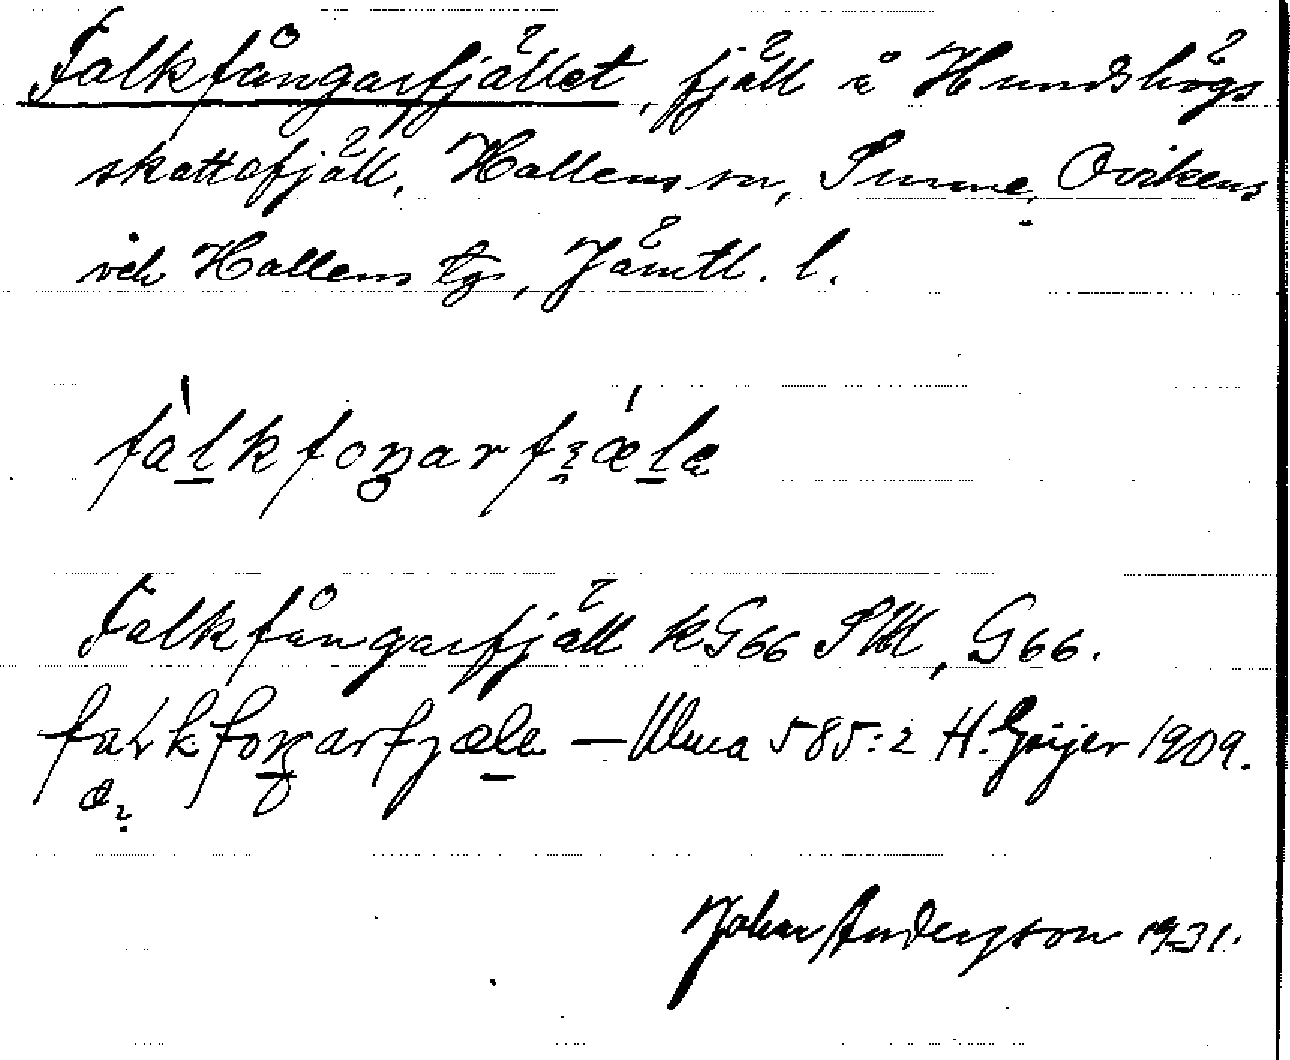 Falkfångarfjället, fjäll i Hundshögs
skattefjäll, Hallens sn, Sunne, Ovikens
och Hallens tgs, Jämtl. l.
fàlkfoŋarfjæ̀lɐ
Falkfångarfjäll kG66 SM, G66.
falkfoŋarfjæla — Ulma 585:2 H. Geijer 1909.
John Anderzson 1931.